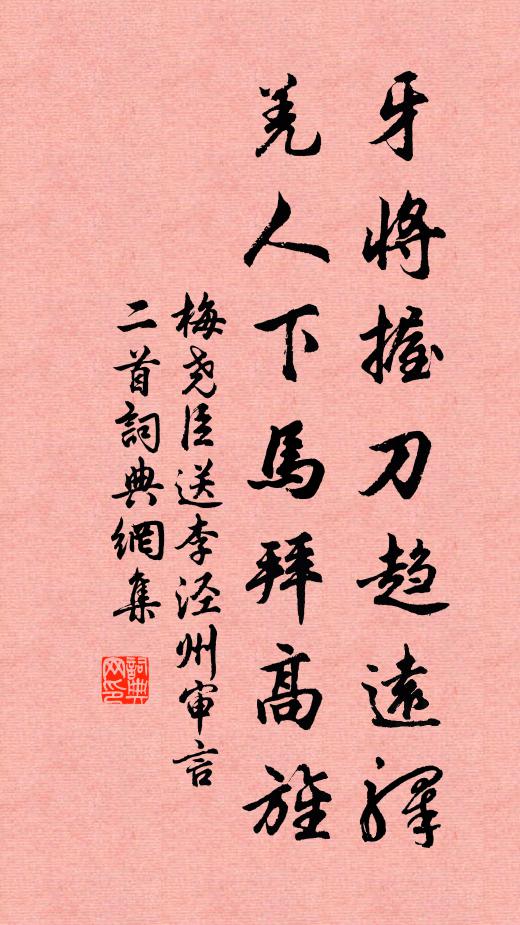 牙將握刀趨遠驛
羌人下馬拜高旌
梅尧臣送李泾州审言
二首詞典網集
詞典网印